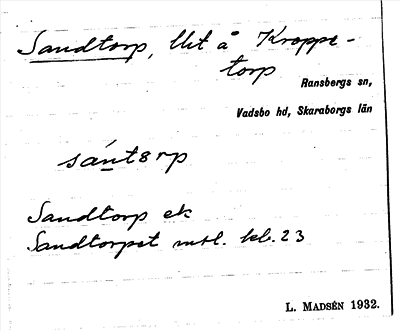 Sandtorp, lht å Kroppe-
torp
Ransbergs sn,
Vadsbo hd, Skaraborgs län
sántɵrp
Sandtorp ek
Sandtorpet mtl. kb. 23
L. MADSÉN 1932.